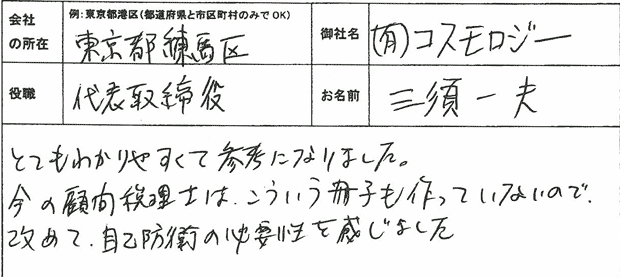 会社の所在
例：東京都港区（都道府県と市区町村のみでOK）
東京都練馬区
御社名
(有)コスモロジー
役職
代表取締役
お名前
三須一夫
とてもわかりやすくて参考になりました。
今の顧問税理士は、こういう冊子も作っていないので、
改めて、自己防衛の必要性を感じました